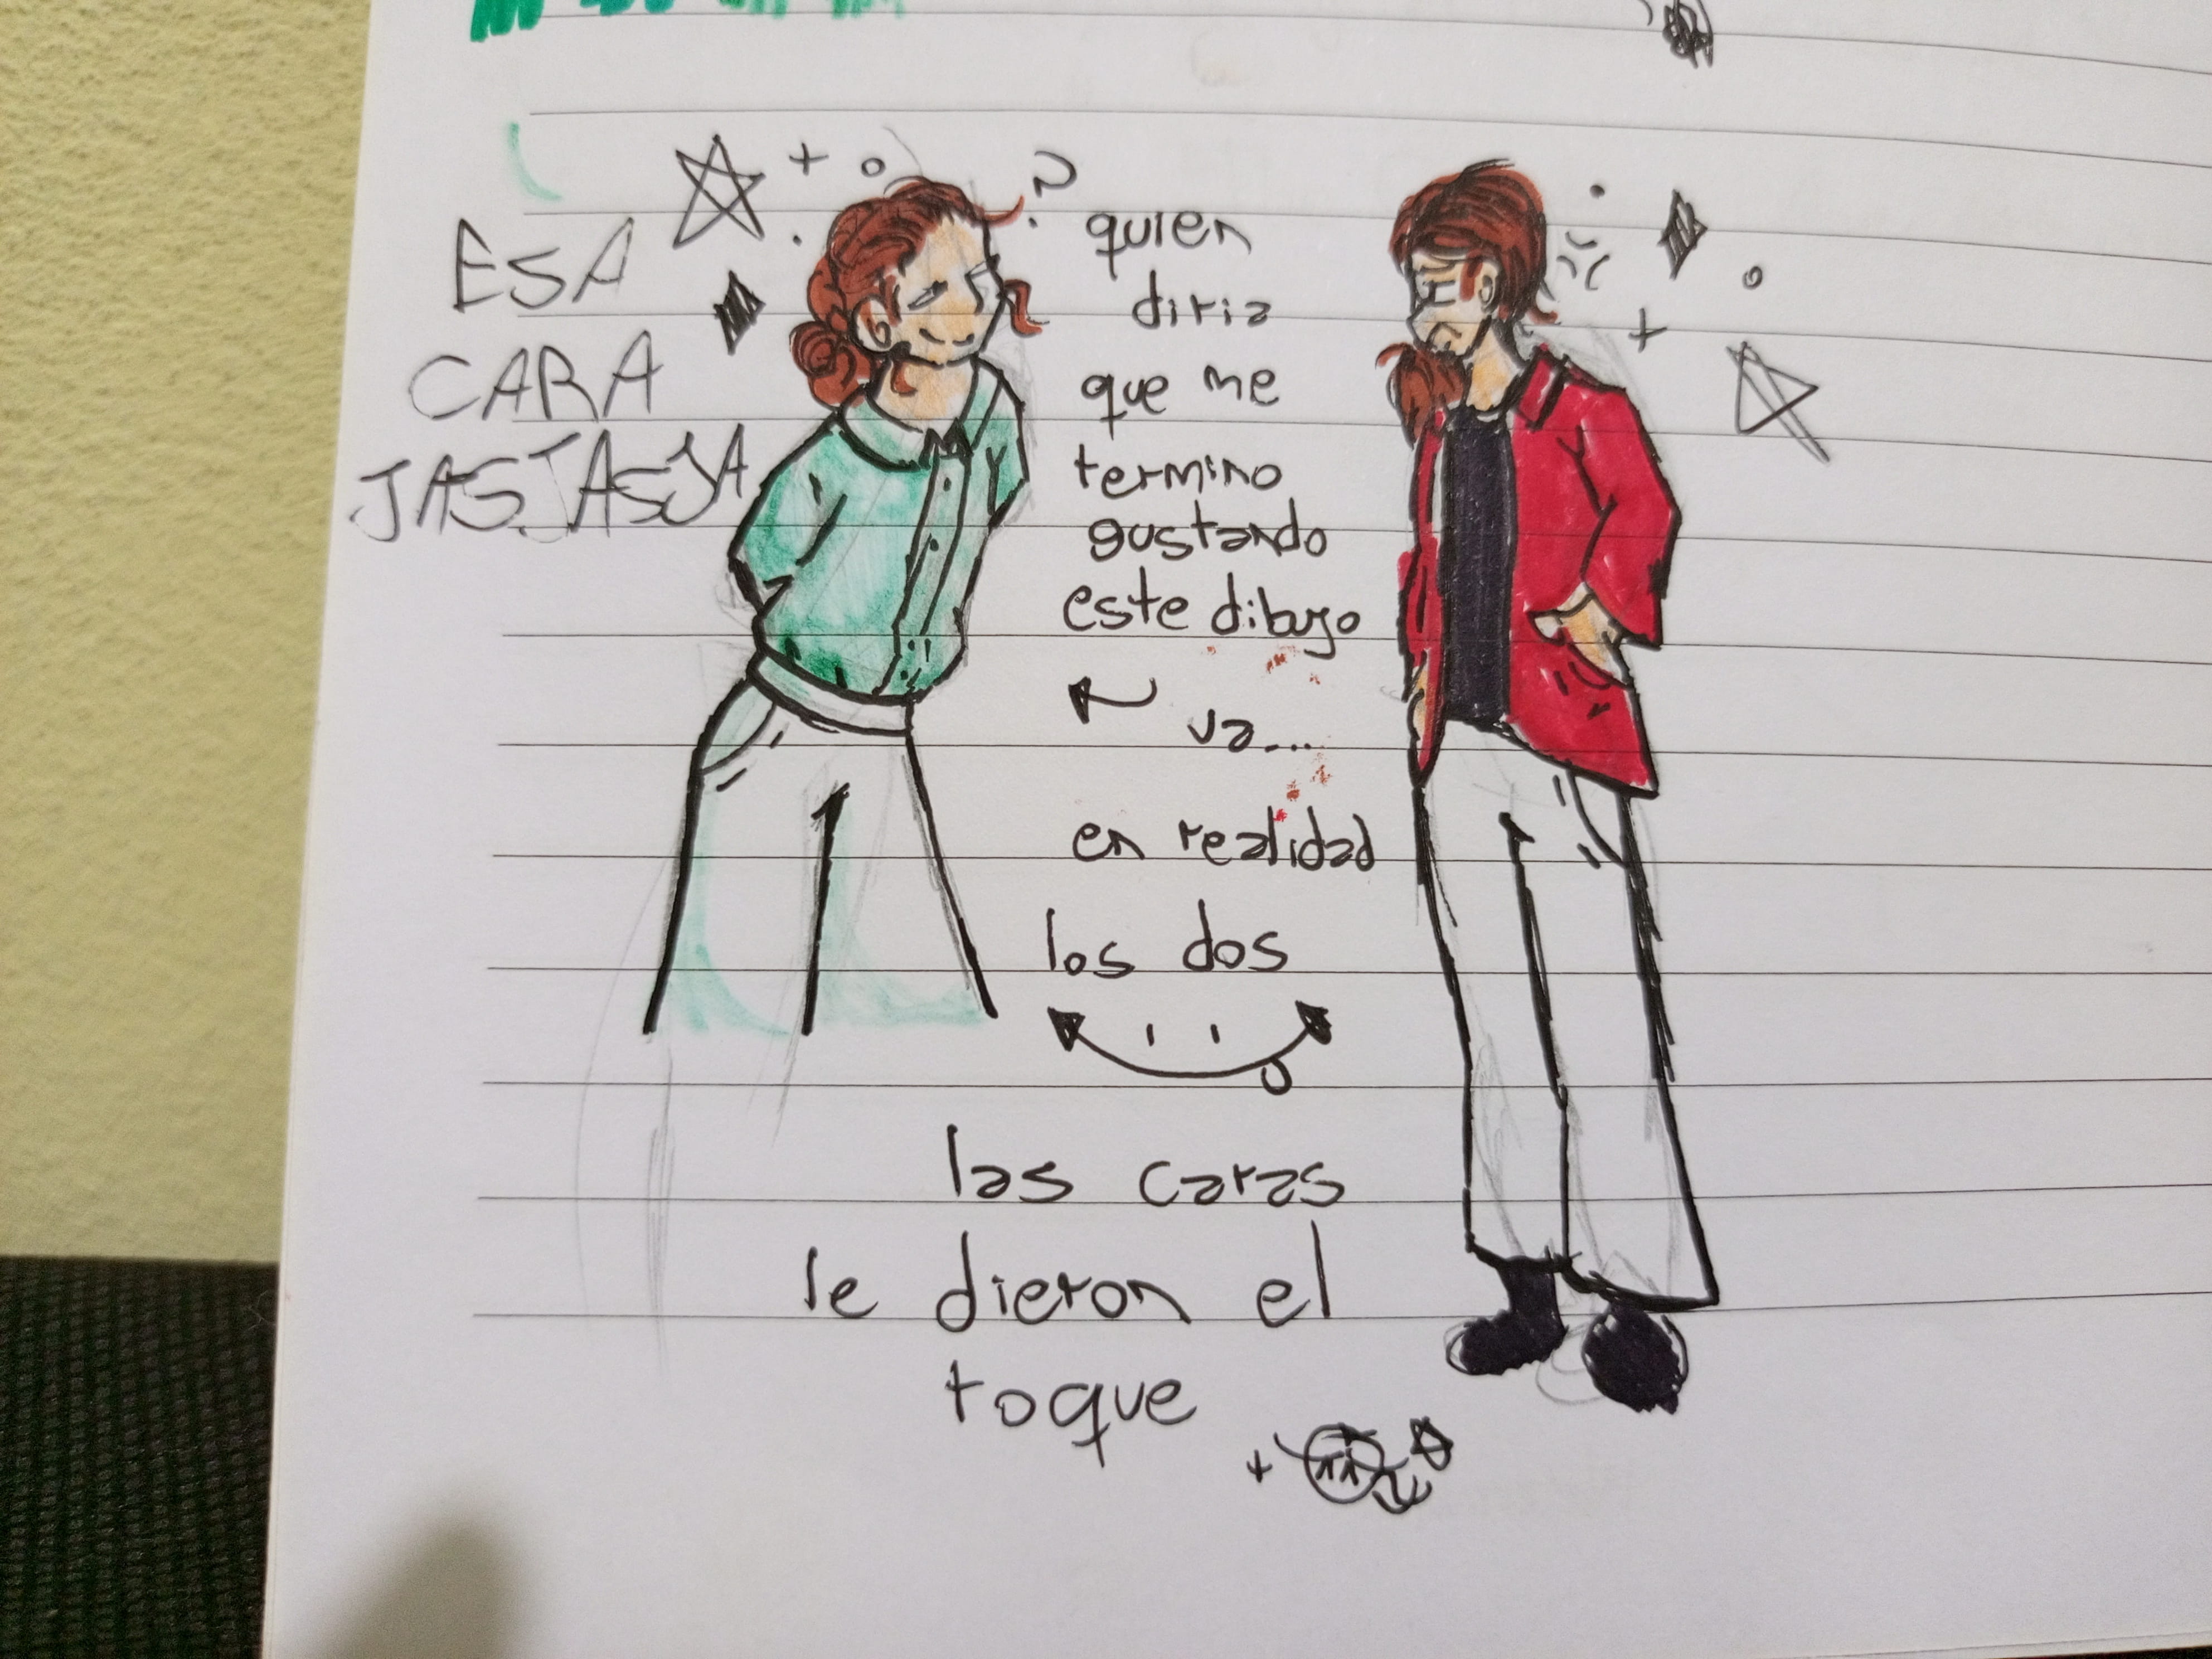 ESA
CARA
JASJASJA
?
quien
diria
que me
termino
gustando
este dibujo
va...
en realidad
los dos
las caras
le dieron el
toque